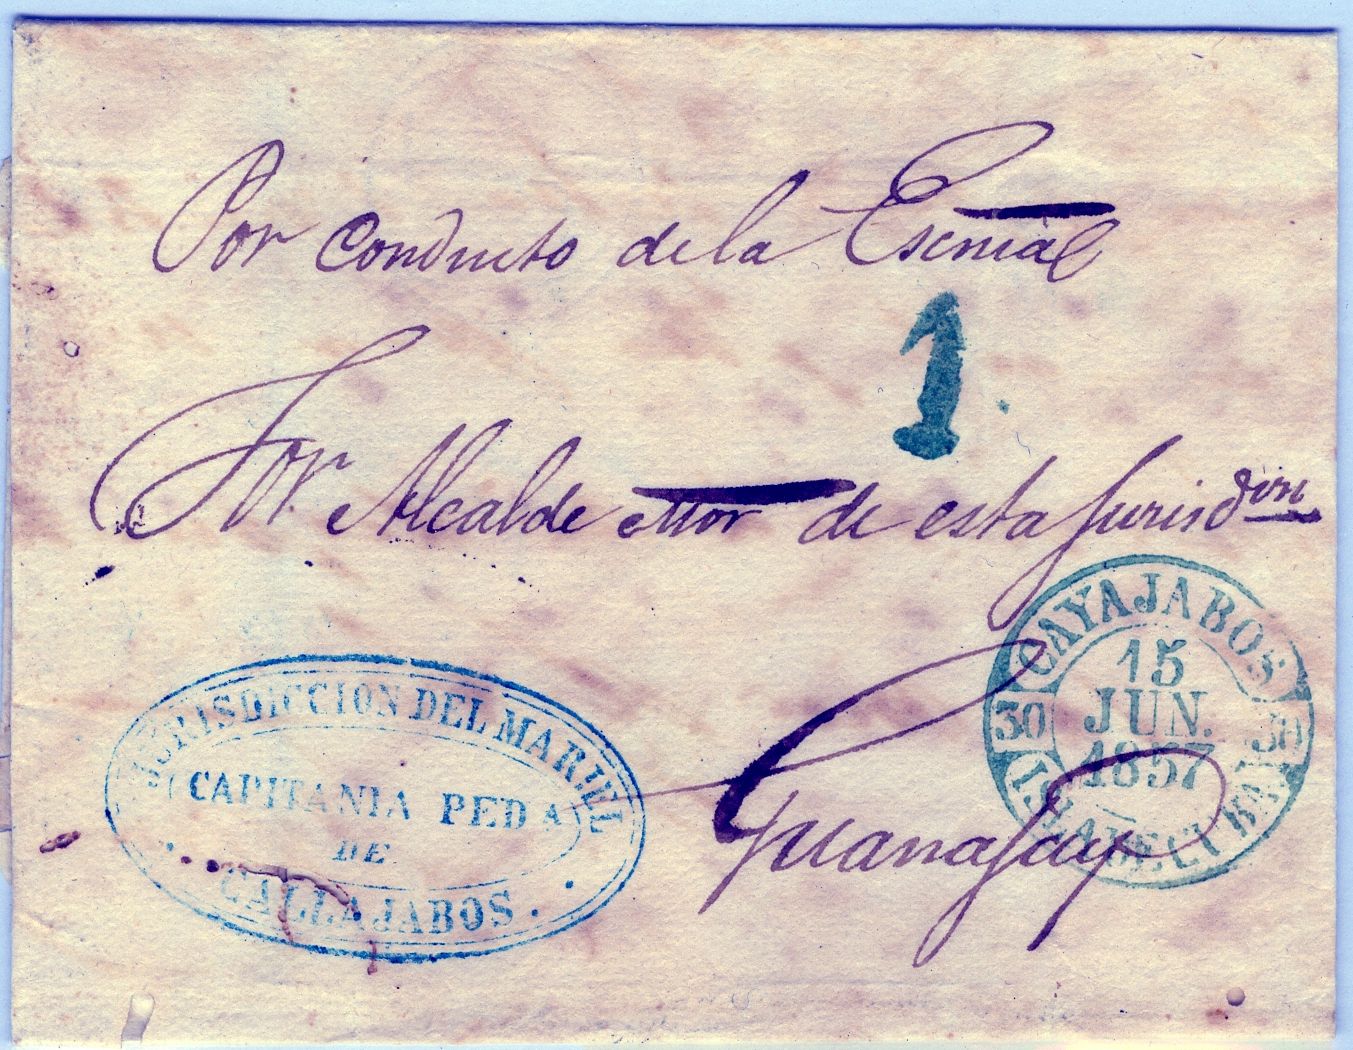 Por conducto de la Escnía
1
Sor Alcalde Mor de esta Jurisdon
JURISDICCION DEL MARIEL
CAPITANIA PEDA
DE
CALLAJABOS.
CAYAJABOS
15
JUN.
1857
30 30
ISLA DE CUBA
Guanajay